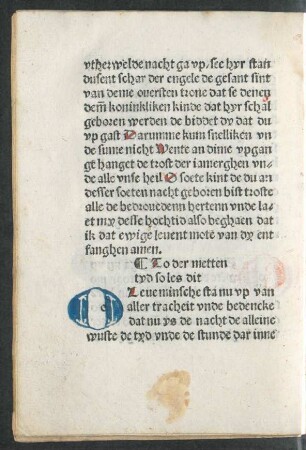 vtherwelde nacht ga vp, see hyr stan
dusent schar der engele de gesant sint
van deme ouersten trone dat se denen
dem koninkliken kinde dat hyr schal
geboren werden de biddet dy dat du
vp gast Darumme kum snelliken vn
de sume nicht Wente an dime vpgan
ge hanget de trost der iamerghen vn-
de alle vnse heil O soete kint de du an
desser soeten nacht geboren bist troste
alle de bedroeueden hertenn vnde la
et my desse hochtid also beghaen dat
ik dat ewige leuent mote van dy ent
fanghen amen.
¶ To der metten
tyd so les dit
O Leue minsche sta nu vp van
aller tracheit vnde bedencke
dat nu ys de nacht de alleine
wuste de tyd vnde de stunde dar inne